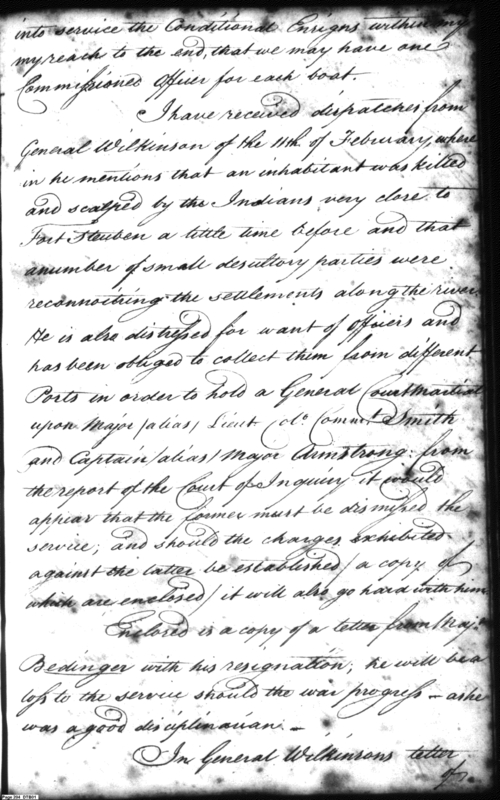 into service the Conditional Ensigns within my
my reach to the end, that we may have one
Commissioned Officer for each boat.
I have received dispatches from
General Wilkinson of the 11th. of February, where
in he mentions that an inhabitant was killed
and scalped by the Indians very close to
Fort Steuben a little time before and that
a number of small desultory parties were
reconnoitring the settlements along the river.
He is also distressed for want of officers and
has been obliged to collect them from different
Posts in order to hold a General Court Martial
upon Major /alias/ Lieut Colo. Commt. Smith
and Captain /alias/ Major Armstrong: from
the report of the Court of Inquiry it would
appear that the former must be dismissed the
service; and should the charges exhibited
against the latter be established / a copy of
which are enclosed / it will also go hard with him
Enclosed is a copy of a letter from Majr.
Bedinger with his resignation; he will be a
loss to the service should the war progress - as he
was a good disciplinarian. -
In General Wilkinsons letter
of